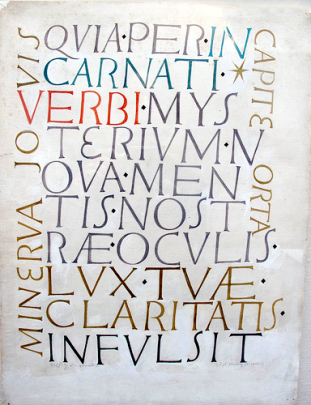 QVIA·PER·IN
CARNATI·
VERBI·MYS
TERIVM·N
OVA·MEN
TIS·NOST
RÆ·OCVLIS·
LVX·TVÆ·
CLARITATIS·
INFVLSIT
MINERVA JOVIS
CAPITE ORTA